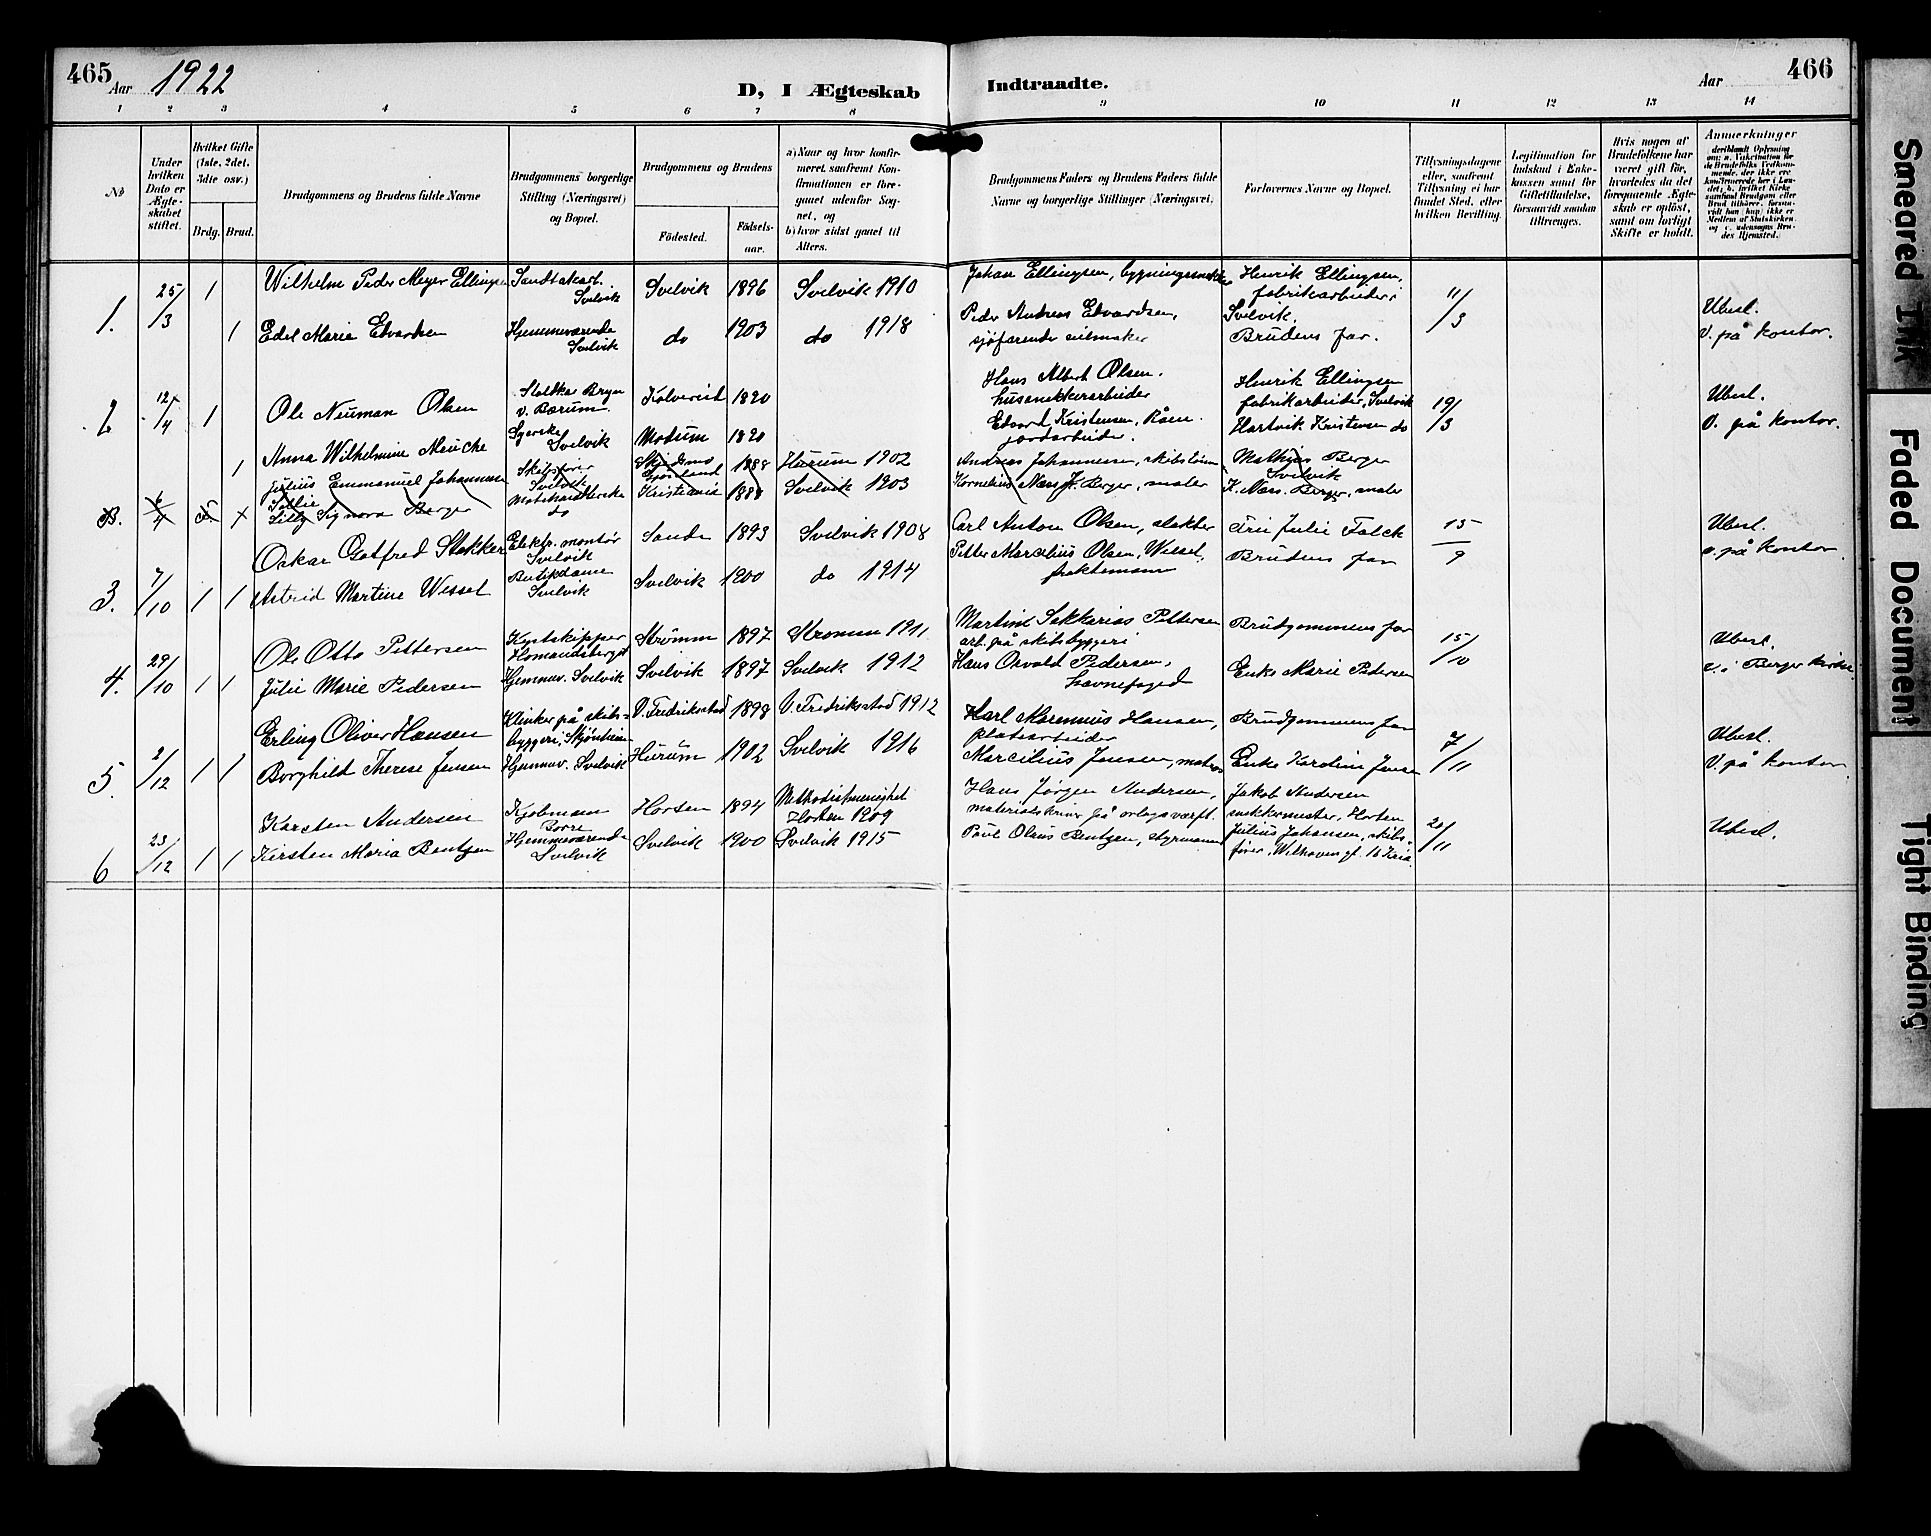 465
Aar 1922
D, I Ægteskab
Indtraadte.
Aar
466
1 2 3 4 5 6 7 8 9 10 11 12 13 14
No
Under hvilken Dato er Ægteskabet stiftet.
Hvilket Gifte (1ste, 2det, 3die osv.)
Brdg. Brud.
Brudgommens og Brudens fulde Navne
Brudgommens borgerlige Stilling (Næringsvei) og Bopæl.
Brudgommens og Brudens
Födested. Födselsaar.
a) Naar og hvor konfirmeret saafremt Konfirmationen er foregaaet udenfor Sognet, og b) hvor sidst gaaet til Alters.
Brudgommens Faders og Brudens Faders fulde Navne og borgerlige Stillinger (Næringsvei)
Forlovernes Navne og Bopæl.
Tillysningsdagene eller, saafremt Tillysning ei har fundet Sted, efter hvilken Bevilling.
Legitimation for Indskud i Enkekassen samt for Giftetilladelse, forsaavidt saadan tiltrænges.
Hvis nogen af Brudefolkene har været gift för, hvorledes da det foregaaende Ægteskab er oplöst, samt om lovligt Skifte er holdt.
Anmerkninger
1. 25/3 1 Wilhelm Peder Meyer Ellingsen Sandtakarb. Svelvik Svelvik 1896 Svelvik 1910 Johan Ellingsen, bygningssnekker Henrik Ellingsen, fabrikarbeider i Svelvik. 11/3 Ubesl.
1 Edel Marie Edvardsen Hjemmeværende Svelvik do 1903 do 1918 Peder Andreas Edvardsen, sjøfarende seilmaker Brudens far. V. på kontor.
2 12/4 1 Ole Neuman Olsen v. Bærum 18 Hans Albert Olsen. Henrik Ellingsen fabrikarbeider, Svelvik 19/3 Ubesl.
1 Anna Wilhelmine Svelvik Modum 18 Edvard Kristensen, jordarbeider. Hartvik Kristensen do V. på kontor.
3. 6/4 Julius Emmanuel Johannesen Skibsfører Svelvik 1888 Hurum 1902 Andreas Johannesen, Mathias Berger Svelvik
Lilly Signora Berger do Kristiania 188 Svelvik 1903 Kornelius Næss Berger, maler K. Næss Berger, maler
3. 7/10 1 Oskar Gotfred Stokker Elektr. montør Svelvik Sande 1893 Svelvik 1908 Carl Anton Olsen, slakter Julie Falck 15/9 Ubesl.
1 Astrid Martine Wessel Butikdame Svelvik Svelvik 1900 do 1914 Petter Marcelius Olsen Wessel, fraktemann Brudens far v. på kontor
4. 29/10 1 Ole Otto Pettersen Kystskipper Strømm 1897 Strømm 1911 Sakkarias Pettersen arb. på skibsbyggeri Brudgommens far 15/10 Ubesl.
1 Julie Marie Pedersen Hjemmev. Svelvik Svelvik 1897 Svelvik 1912 Hans Osvald Pedersen, havnefoged Enke Marie Pedersen v. i Berger kirke.
5. 2/12 1 Erling Oliver Hansen Klinker på skibsbyggeri, V. Fredriksstad 1898 V. Fredriksstad 1912 Karl Marennius Hansen, platearbeider Brudgommens far 7/11 Ubesl.
1 Borghild Therese Jensen Hjemmev. Svelvik Hurum 1902 Svelvik 1916 Marcilius Jensen, matros Enke Karoline Jensen V. på kontor.
6 23/12 1 Karsten Andersen Kjøbmann Borre Horten 1894 Methodistmenighet Horten 1909 Hans Jørgen Andersen, på orlogsværft. Jakob Andersen snekkermester, Horten 20/11 Ubesl.
1 Kirsten Maria Bentzen Hjemmeværende Svelvik Svelvik 1900 Svelvik 1915 Paul Olaus Bentzen, styrmann Julius Johansen, skibsfører, 16 Kr.ia
Smeared Ink
Faded Document
Tight Binding